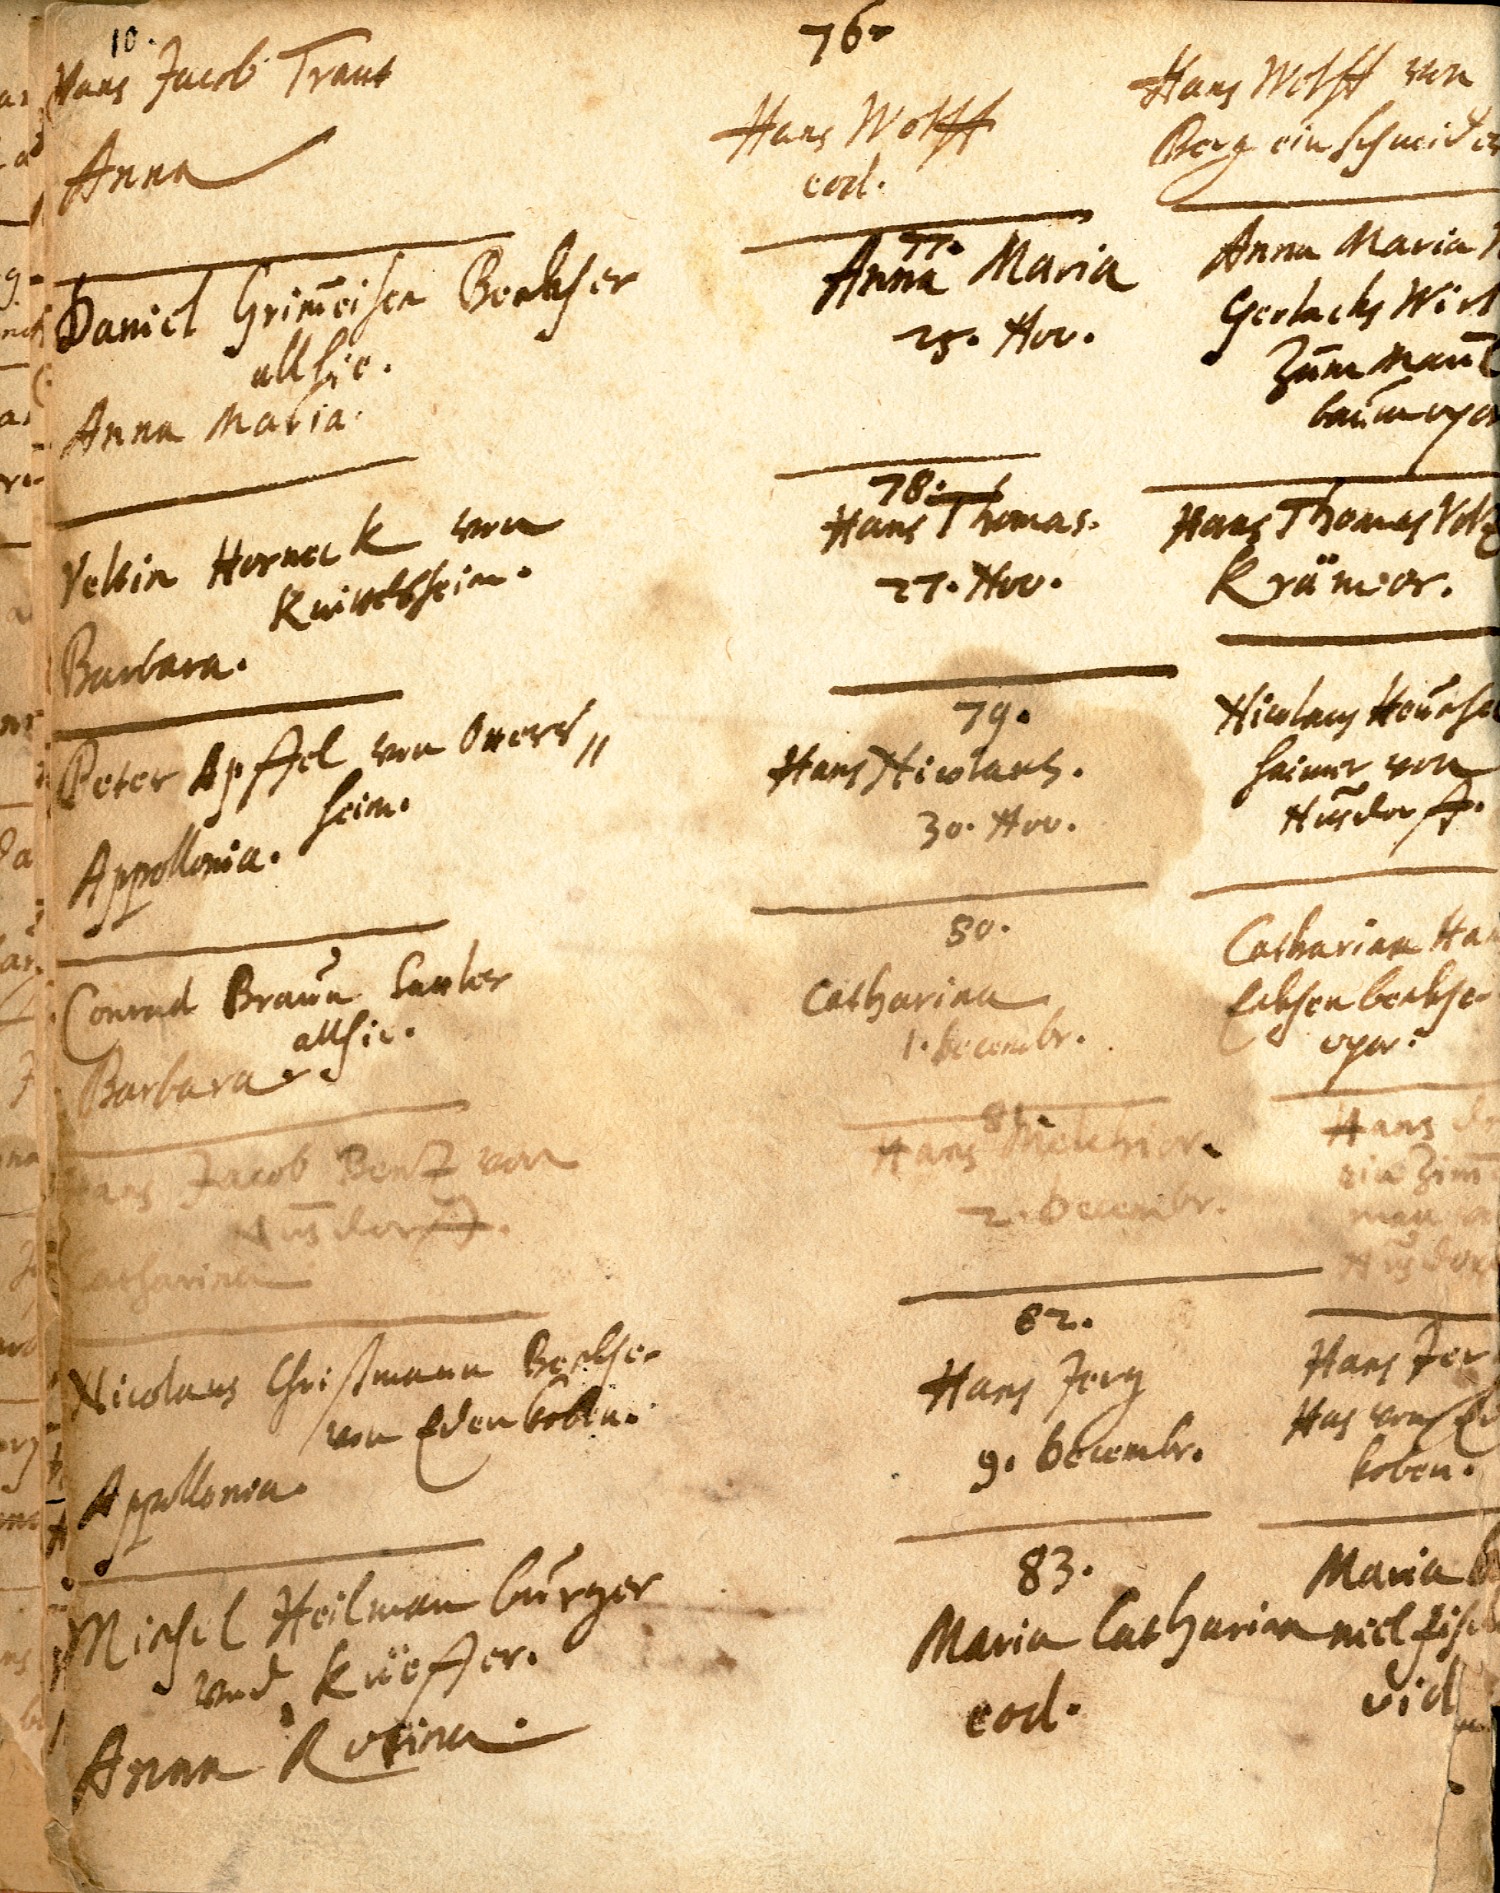 10.
Hans Jacob Traut
Anna
76.
Hans Wolff
eod.
Hans Wolff von
Berg ein schneider
Daniel Grim̄eisen Beckher
allhie.
Anna Maria.
77.
Anna Maria
25. Nov.
Anna Maria
Gerlachs Wirt
Zum Maul
baum
Veltin Horneck von
Knivelsheim.
Barbara.
78.
Hans Thomas.
27. Nov.
Hans Thomas Voltz
Krämer.
Peter Apffel von Overs„
heim.
Appollonia.
79.
Hans Nicolaus.
30. Nov.
Nicolaus
heimer von
Nusdorff.
Conrad Braun
allhie.
Barbara.
80.
Catharina
1. Decembr.
Catharina
beckhe
Hans Jacob Bentz von
Nusdorff.
Catharina
81.
Hans Melchior.
2. Decembr.
Hans
ein Zim̄
man
Nusdor
Nicolaus Christmann Beckher
von Edenkoben.
Appollonia.
82.
Hans Jerg
9. Decembr.
Hans Jer
Has von Ed
koben.
Michel Heilman burger
und Küeffer.
Anna Rosina.
83.
Maria Catharina
eod.
Maria
niel fisch
vid